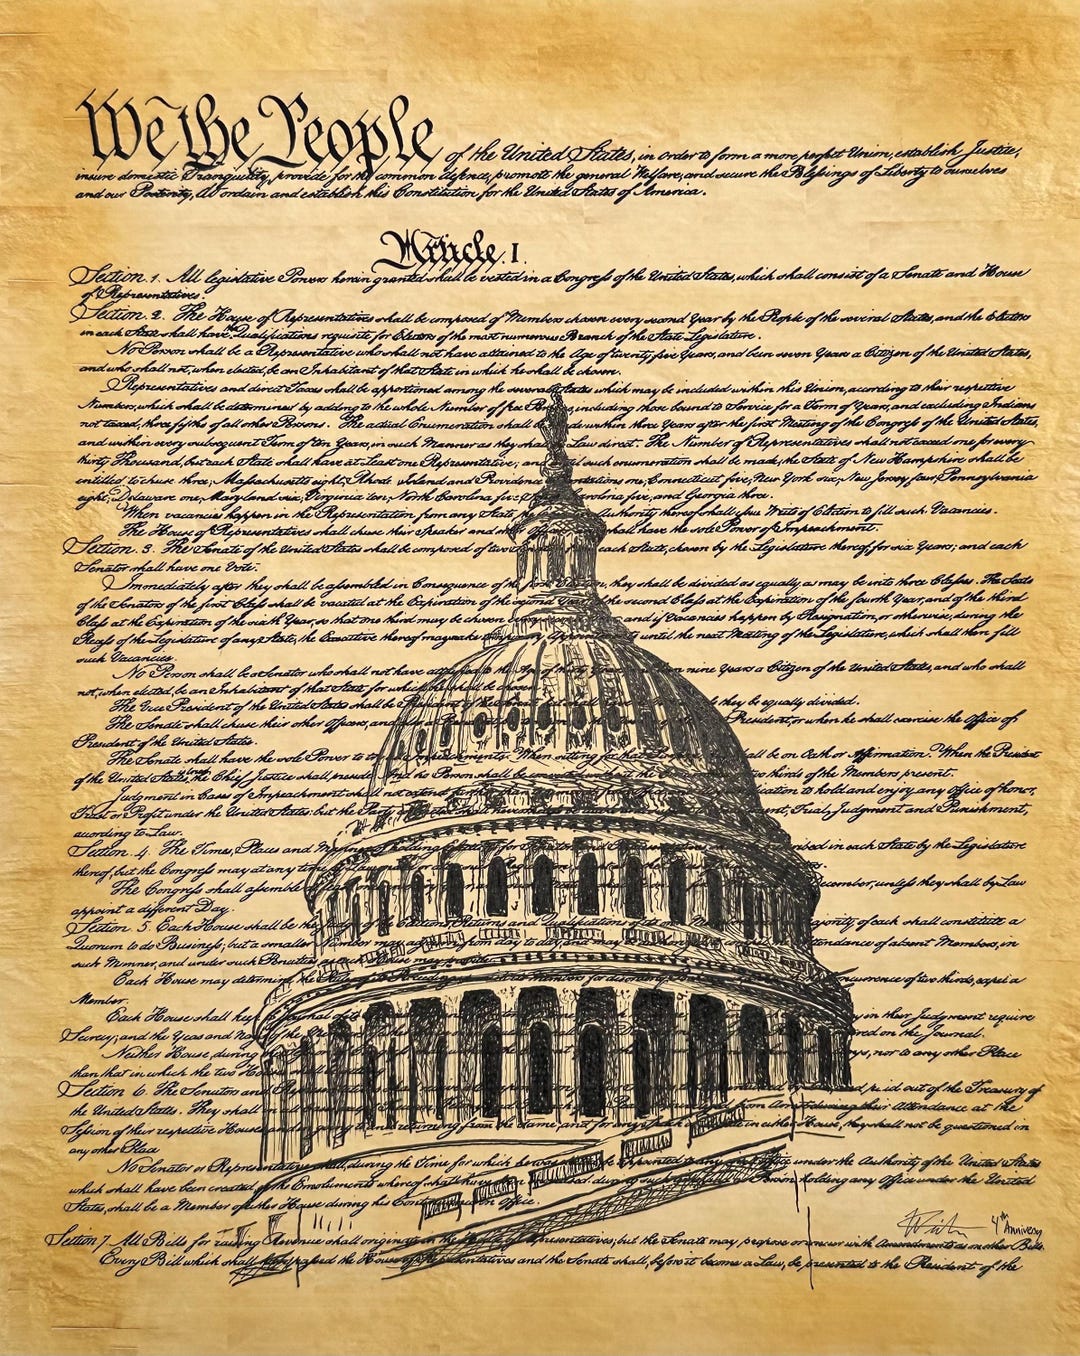 We the People of the United States, in order to form a more perfect Union, establish Justice,
insure domestic Tranquility, provide for the common defence, promote the general Welfare, and secure the Blessings of Liberty to ourselves
and our Posterity, do ordain and establish this Constitution for the United States of America.
Article. I.
Section. 1. All legislative Powers herein granted shall be vested in a Congress of the United States, which shall consist of a Senate and House
of Representatives.
Section. 2. The House of Representatives shall be composed of Members chosen every second Year by the People of the several States, and the Electors
in each State shall have the Qualifications requisite for Electors of the most numerous Branch of the State Legislature.
No Person shall be a Representative who shall not have attained to the Age of twenty five Years, and been seven Years a Citizen of the United States,
and who shall not, when elected, be an Inhabitant of that State in which he shall be chosen.
Representatives and direct Taxes shall be apportioned among the several States which may be included within this Union, according to their respective
Numbers, which shall be determined by adding to the whole Number of free including those bound to Service for a Term of Years, and excluding Indians
not taxed, three fifths of all other Persons. The actual Enumeration shall be made within three Years after the first Meeting of the Congress of the United States,
and within every subsequent Term of ten Years, in such Manner as they shall Law direct. The Number of Representatives shall not exceed one for every
thirty Thousand, but each State shall have at Least one Representative; and such enumeration shall be made, the State of New Hampshire shall be
entitled to chuse three, Massachusetts eight, Rhode Island and Providence Plantations one, Connecticut five, New York six, New Jersey four, Pennsylvania
eight, Delaware one, Maryland six, Virginia ten, North Carolina five, Carolina five, and Georgia three.
When vacancies happen in the Representation from any State, the Authority thereof shall issue Writs of Election to fill such Vacancies.
The House of Representatives shall chuse their Speaker and other Officers shall have the sole Power of Impeachment.
Section. 3. The Senate of the United States shall be composed of two each State, chosen by the Legislature thereof, for six Years; and each
Senator shall have one Vote.
Immediately after they shall be assembled in Consequence of the first Election, they shall be divided as equally as may be into three Classes. The Seats
of the Senators of the first Class shall be vacated at the Expiration of the second Year, of the second Class at the Expiration of the fourth Year, and of the third
Class at the Expiration of the sixth Year, so that one third may be chosen every and if Vacancies happen by Resignation, or otherwise, during the
Recess of the Legislature of any State, the Executive thereof may make temporary Appointments until the next Meeting of the Legislature, which shall then fill
such Vacancies.
No Person shall be a Senator who shall not have attained to the Age of thirty Years nine Years a Citizen of the United States, and who shall
not, when elected, be an Inhabitant of that State for which he shall be chosen.
The Vice President of the United States shall be President of the Senate they be equally divided.
The Senate shall chuse their other Officers, and President, or when he shall exercise the Office of
President of the United States.
The Senate shall have the sole Power to try all Impeachments. When sitting for that Purpose shall be on Oath or Affirmation. When the President
of the United States is tried, the Chief Justice shall preside: And no Person shall be convicted without the two thirds of the Members present.
Judgment in Cases of Impeachment shall not extend further than to hold and enjoy any Office of honor,
Trust or Profit under the United States: but the Party Trial, Judgment and Punishment,
according to Law.
Section. 4. The Times, Places and Manner of holding Elections for in each State by the Legislature
thereof; but the Congress may at any time by Law
The Congress shall assemble December, unless they shall by Law
appoint a different Day.
Section. 5. Each House shall be the Judge of the Elections, Returns and Qualifications of its own Members, Majority of each shall constitute a
Quorum to do Business; but a smaller Number may adjourn from day to day, and may be Attendance of absent Members, in
such Manner, and under such Penalties as each House may provide.
Each House may determine the Rules of its Proceedings, Members for disorderly Concurrence of two thirds, expel a
Member.
Each House shall keep a Journal of its in their Judgment require
Secrecy; and the Yeas and Nays of the Members on the Journal.
Neither House, during nor to any other Place
than that in which the two Houses shall
Section 6. The Senators and Representatives paid out of the Treasury of
the United States. They shall in all from Arrest during their Attendance at the
Session of their respective Houses, and in going to and returning from the same; and for any House, they shall not be questioned in
any other Place
No Senator or Representative shall, during the Time for which he was appointed to any under the Authority of the United States
which shall have been created, or the Emoluments whereof shall have been Person holding any Office under the United
States, shall be a Member of either House during his Continuance in Office.
4th Anniversary
Section 7. All Bills for raising Revenue shall originate in the House of Representatives; but the Senate may propose or concur with Amendments as on other Bills.
Every Bill which shall have passed the House of Representatives and the Senate, shall, before it become a Law, be presented to the President of the